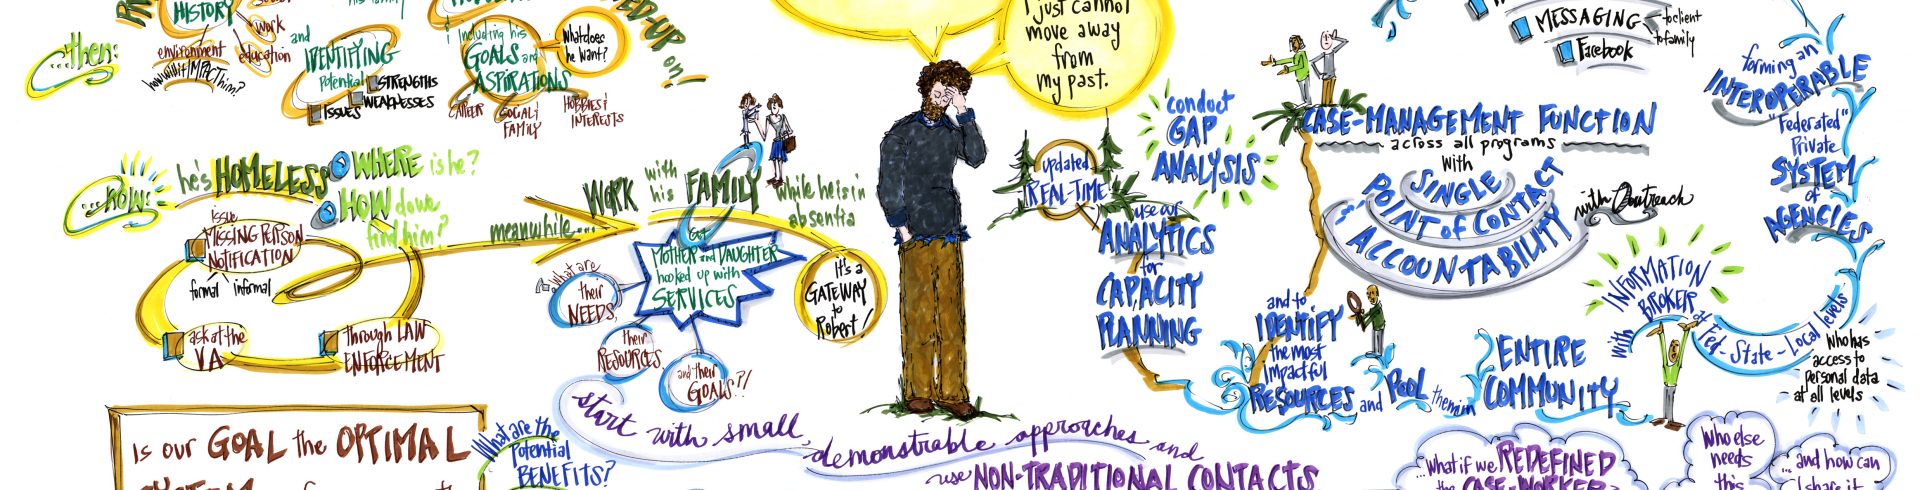 HISTORY
work
education
environment
how will it IMPACT him?
and
IDENTIFYING
Potential
STRENGTHS
WEAKNESSES
ISSUES
including his
GOALS and
ASPIRATIONS
CAREER
SOCIAL/
FAMILY
HOBBIES/
INTERESTS
What does
he want?
...then:
...now:
he's HOMELESS
WHERE is he?
HOW do we
find him?
issue
MISSING PERSON
NOTIFICATION
formal informal
ask at the
VA
through LAW
ENFORCEMENT
meanwhile...
WORK with his FAMILY while he is in
absentia
Get
MOTHER and DAUGHTER
hooked up with
SERVICES
What are
their
NEEDS,
their
RESOURCES,
and their
GOALS?!
It's a
GATEWAY
to
Robert!
I just cannot
move away
from
my past.
updated
REAL-TIME
conduct
GAP
ANALYSIS
use our
ANALYTICS
for
CAPACITY
PLANNING
and to
IDENTIFY
the most
impactful
RESOURCES and POOL them in
ENTIRE
COMMUNITY
MESSAGING
to client
to family
Facebook
CASE-MANAGEMENT FUNCTION
across all programs
with
SINGLE
POINT of CONTACT
ACCOUNTABILITY
with Outreach
forming an
INTEROPERABLE
"Federated"
Private
SYSTEM
of
AGENCIES
with INFORMATION
BROKER
at Fed-State-Local levels
who has
access to
personal data
at all levels
Is our GOAL the OPTIMAL
What are the
potential
BENEFITS?
start with small, demonstrable approaches and
use NON-TRADITIONAL CONTACTS
"What if we REDEFINED
the CASE-WORKER
Who else
needs
this
...and how can
I share it